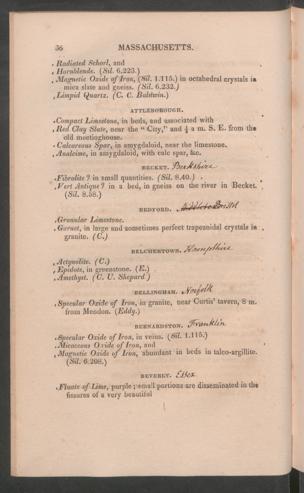 56 MASSACHUSETTS.
Radiated Schorl, and
Hornblende. (Sil. 6.223.)
Magnetic Oxide of Iron, (Sil. 1.115.) in octahedral crystals in
mica slate and gneiss. (Sil. 6.232.)
Limpid Quartz. (C. C. Baldwin.)
ATTLEBOROUGH.
Compact Limestone, in beds, and associated with
Red Clay Slate, near the "City," and ½ a m. S. E. from the
old meetinghouse.
Calcareous Spar, in amygdaloid, near the limestone.
Analcime, in amygdaloid, with calc spar, &c.
BECKET. Berkshire
Fibrolite? in small quantities. (Sil. 8.40.)
Vert Antique? in a bed, in gneiss on the river in Becket.
(Sil. 8.58.)
BEDFORD.
Granular Limestone.
Garnet, in large and sometimes perfect trapezoidal crystals in
granite. (C.)
BELCHERTOWN. Hampshire
Actynolite. (C.)
Epidote, in greenstone. (E.)
Amethyst. (C. U. Shepard)
BELLINGHAM. Norfolk
Specular Oxide of Iron, in granite, near Curtis' tavern, 8 m.
from Mendon. (Eddy.)
BERNARDSTON. Franklin
Specular Oxide of Iron, in veins. (Sil. 1.115.)
Micaceous Oxide of Iron, and
Magnetic Oxide of Iron, abundant in beds in talco-argillite.
(Sil. 6.208.)
BEVERLY. Essex
Fluate of Lime, purple; small portions are disseminated in the
fissures of a very beautiful